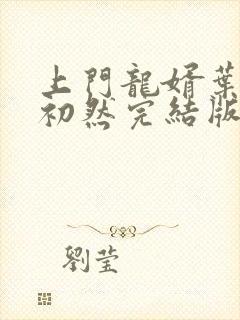 上門龍婿葉
初然完結版
劉莹